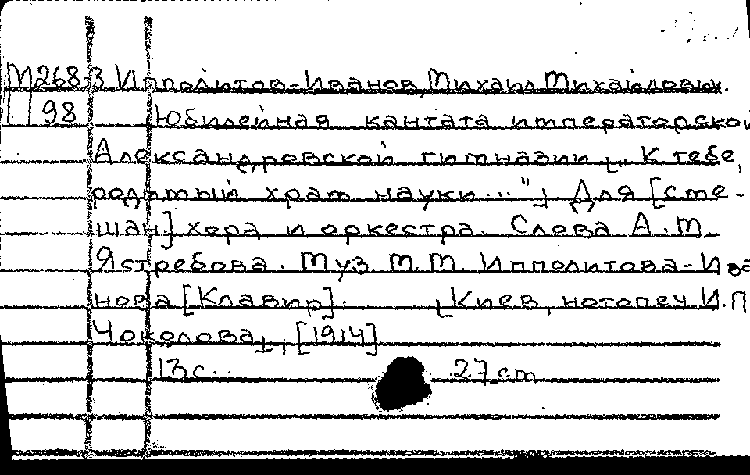 М268-3 Ипполитов-Иванов, Михаил Михайлович.
П 98 Юбилейная кантата императорской
Александровской гимназии "К тебе,
родимый храм науки..." Для [сме-
шан] хора и оркестра. Слова А.М.
Ястребова. Муз. М.М. Ипполитова-Ива
нова [Клавир]. Киев, нотопеч И.П
Чоколова, [1914]
13 с. 27 cm